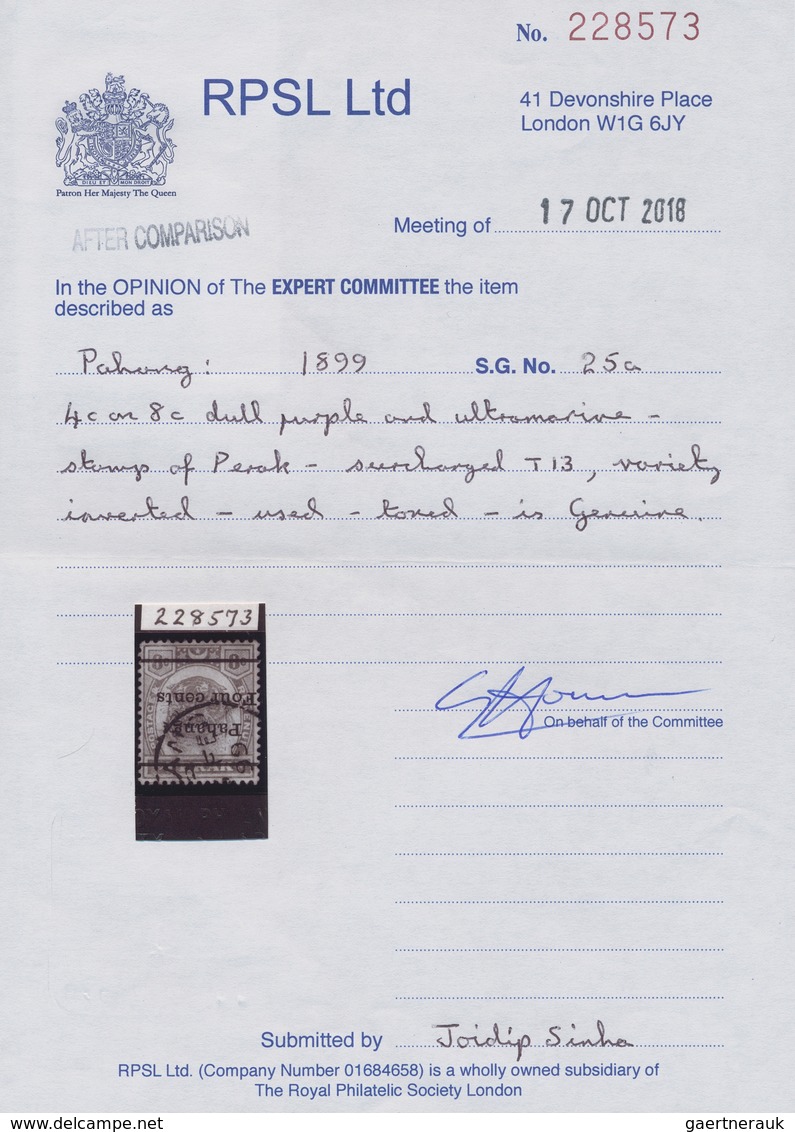 No. 228573
RPSL Ltd
41 Devonshire Place
London W1G 6JY
DIEU ET MON DROIT
Patron Her Majesty The Queen
AFTER COMPARISON
Meeting of 17 OCT 2018
In the OPINION of The EXPERT COMMITTEE the item
described as
Pahang: 1899 S.G. No. 25a
4c on 8c dull purple and ultramarine -
stamp of Perak - surcharged T13, variety
inverted - used - toned - is Genuine.
228573
8c 8c
Four cents
Pahang
On behalf of the Committee
Submitted by Joidip Sinha
RPSL Ltd. (Company Number 01684658) is a wholly owned subsidiary of
The Royal Philatelic Society London
www.delcampe.net
gaertnerauk